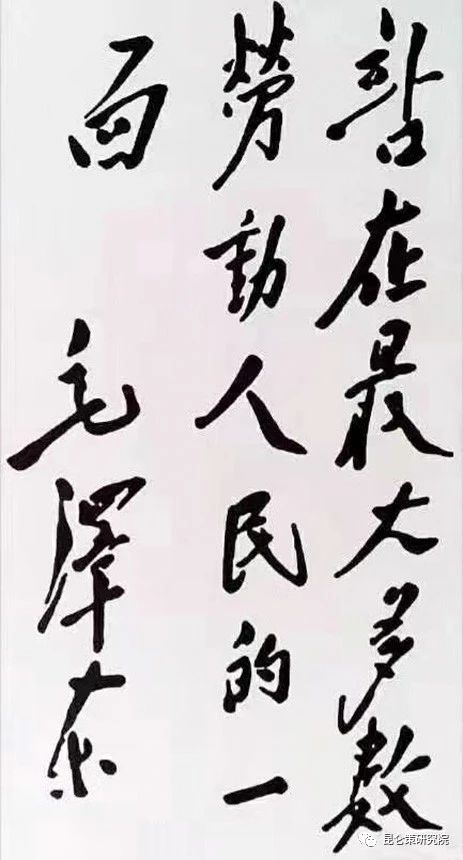 站在最大多数
勞動人民的一
面 毛澤东
昆仑策研究院